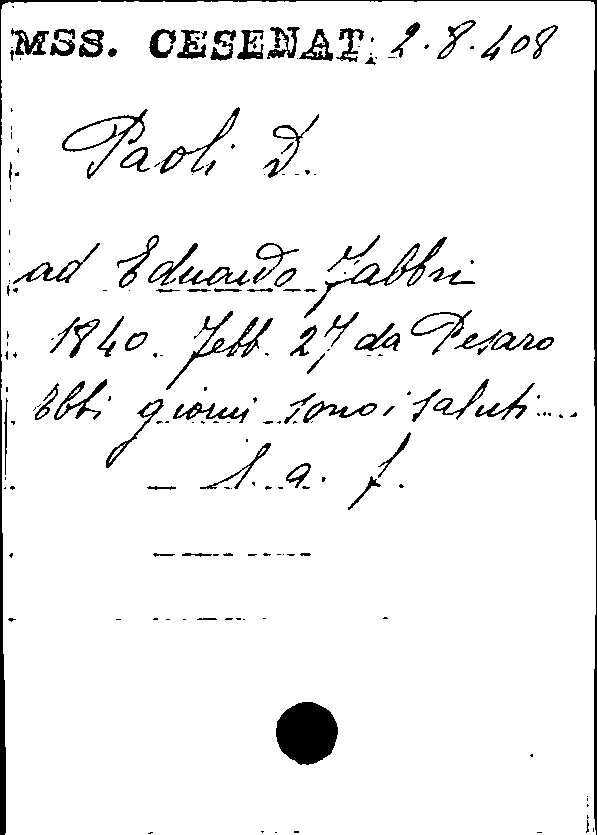 MSS. CESENAT. 2.8.408
Paoli D.
ad Eduardo Fabbri
1840. Febb. 27 da Pesaro
Ebbi giorni sono i saluti....
l. a. f.